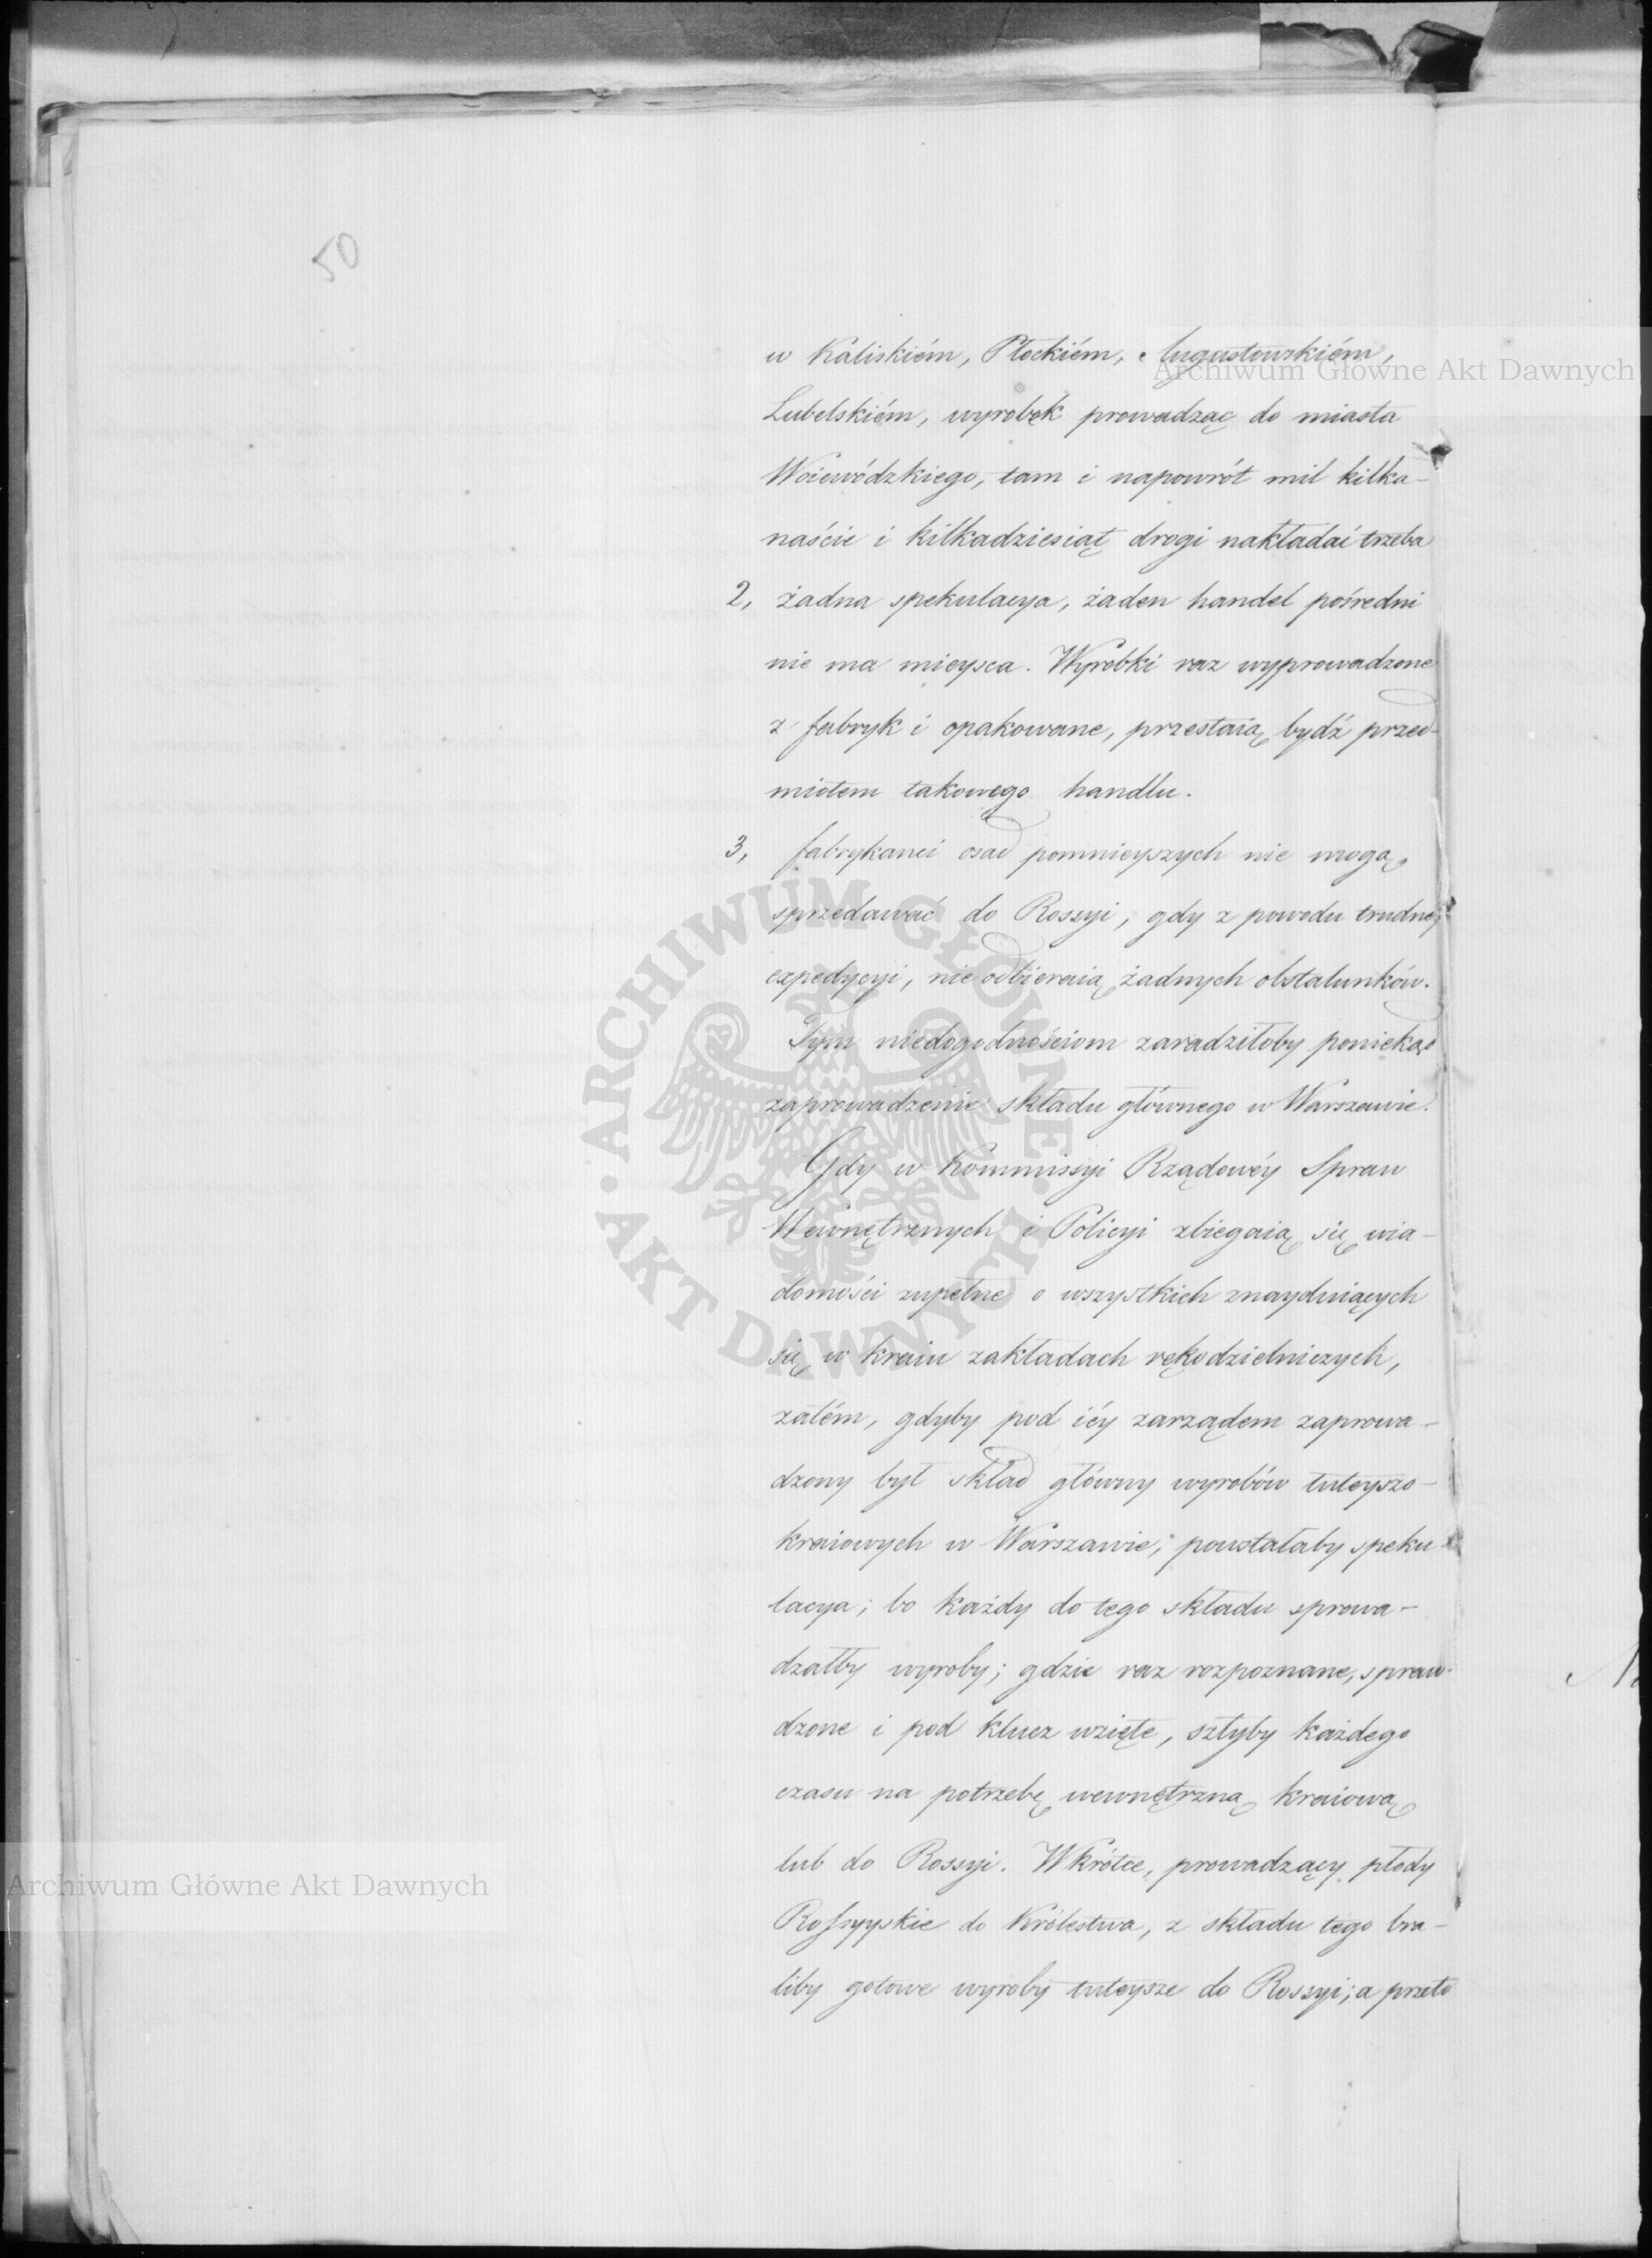 50
w Kaliskiém, Płockiém, Augustowskiém,
Lubelskiém, wyrobek prowadząc do miasta
Woiewódzkiego, tam i napowrót mil kilka-
naście i kilkadziesiąt drogi nakładać trzeba
2, żadna spekulacya, żaden handel pośredni
nie ma mieysca. Wyrobki raz wyprowadzone
z fabryk i opakowane, przestaią bydź przed-
miotem takowego handlu.
3, fabrykanci osad pomnieyszych nie mogą
sprzedawać do Rossyi, gdy z powodu trudney
expedycyi, nie odbieraią żadnych obstalunków.
Tym niedogodnościom zaradziłoby poniekąd
zaprowadzenie składu głównego w Warszawie.
Gdy w Kommissyi Rządowéy Spraw
Wewnętrznych i Policyi zbiegaią się wia-
domości zupełne o wszystkich znayduiących
się w kraiu zakładach rękodzielniczych,
zatém, gdyby pod iéy zarządem zaprowa-
dzony był skład główny wyrobów tuteyszo-
kraiowych w Warszawie, powstałaby speku-
lacya; bo każdy do tego składu sprowa-
dzałby wyroby; gdzie raz rozpoznane, spraw-
dzone i pod klucz wzięte, szłyby każdego
czasu na potrzebę wewnętrzną kraiową
lub do Rossyi. Wkrótce, prowadzący płody
Rossyyskie do Królestwa, z składu tego bra-
liby gotowe wyroby tuteysze do Rossyi; a przeto
Archiwum Główne Akt Dawnych
ARCHIWUM GŁÓWNE
AKT DAWNYCH
Archiwum Główne Akt Dawnych